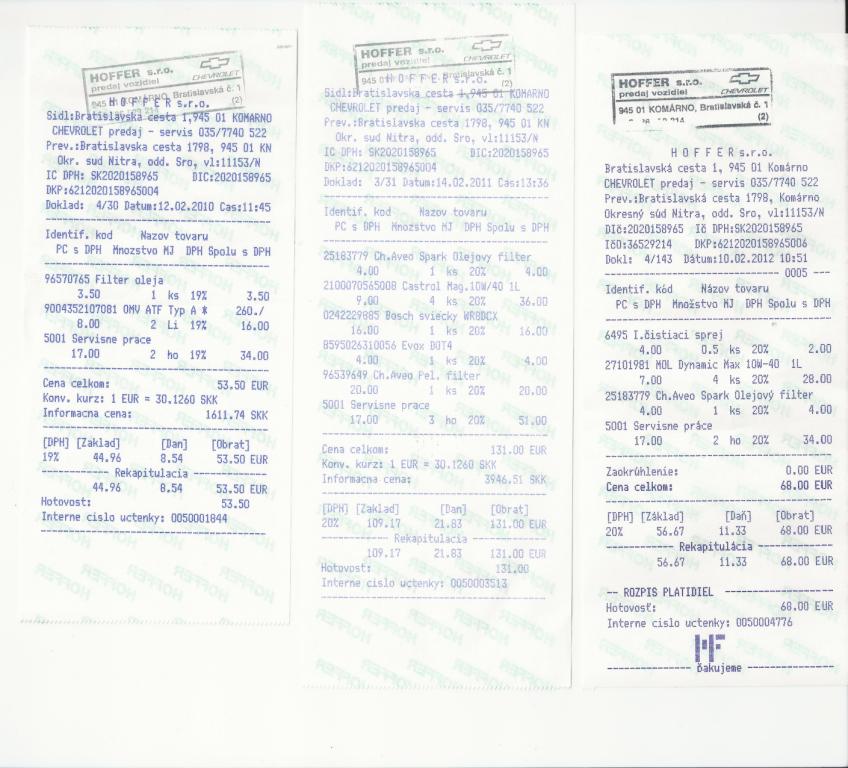 HOFFER s.r.o.
predaj vozidiel
CHEVROLET
945 01 KOMÁRNO, Bratislavská č. 1
(2)
H O F F E R s.r.o.
Sidl:Bratislavska cesta 1,945 01 KOMARNO
CHEVROLET predaj - servis 035/7740 522
Prev.:Bratislavska cesta 1798, 945 01 KN
Okr. sud Nitra, odd. Sro, vl:11153/N
IC DPH: SK2020158965 DIC:2020158965
DKP:6212020158965004
Doklad: 4/30 Datum:12.02.2010 Cas:11:45
Identif. kod Nazov tovaru
PC s DPH Mnozstvo MJ DPH Spolu s DPH
96570765 Filter oleja
3.50 1 ks 19% 3.50
9004352107081 OMV ATF Typ A * 260./
8.00 2 Li 19% 16.00
5001 Servisne prace
17.00 2 ho 19% 34.00
Cena celkom: 53.50 EUR
Konv. kurz: 1 EUR = 30.1260 SKK
Informacna cena: 1611.74 SKK
[DPH] [Zaklad] [Dan] [Obrat]
19% 44.96 8.54 53.50 EUR
------------ Rekapitulacia ------------
44.96 8.54 53.50 EUR
Hotovost: 53.50
Interne cislo uctenky: 0050001844
HOFFER s.r.o.
predaj vozidiel
CHEVROLET
945 01 Bratislavská č. 1
(2)
H O F F E R s.r.o.
Sidl:Bratislavska cesta 1,945 01 KOMARNO
CHEVROLET predaj - servis 035/7740 522
Prev.:Bratislavska cesta 1798, 945 01 KN
Okr. sud Nitra, odd. Sro, vl:11153/N
IC DPH: SK2020158965 DIC:2020158965
DKP:6212020158965004
Doklad: 3/31 Datum:14.02.2011 Cas:13:36
Identif. kod Nazov tovaru
PC s DPH Mnozstvo MJ DPH Spolu s DPH
25183779 Ch.Aveo Spark Olejovy filter
4.00 1 ks 20% 4.00
2100070565008 Castrol Mag.10W/40 1L
9.00 4 ks 20% 36.00
0242229885 Bosch sviecky WR8DCX
16.00 1 ks 20% 16.00
8595026310056 Evox DOT4
4.00 1 ks 20% 4.00
96539649 Ch.Aveo Pel. filter
20.00 1 ks 20% 20.00
5001 Servisne prace
17.00 3 ho 20% 51.00
Cena celkom: 131.00 EUR
Konv. kurz: 1 EUR = 30.1260 SKK
Informacna cena: 3946.51 SKK
[DPH] [Zaklad] [Dan] [Obrat]
20% 109.17 21.83 131.00 EUR
------------ Rekapitulacia ------------
109.17 21.83 131.00 EUR
Hotovost: 131.00
Interne cislo uctenky: 0050003513
HOFFER s.r.o.
predaj vozidiel
CHEVROLET
945 01 KOMÁRNO, Bratislavská č. 1
(2)
H O F F E R s.r.o.
Bratislavská cesta 1, 945 01 Komárno
CHEVROLET predaj - servis 035/7740 522
Prev.:Bratislavská cesta 1798, Komárno
Okresný súd Nitra, odd. Sro, vl:11153/N
DIč:2020158965 Ič DPH:SK2020158965
IčO:36529214 DKP:6212020158965006
Dokl: 4/143 Dátum:10.02.2012 10:51
------------------------------ 0005 ---
Identif. kód Názov tovaru
PC s DPH Množstvo MJ DPH Spolu s DPH
6495 I.čistiaci sprej
4.00 0.5 ks 20% 2.00
27101981 MOL Dynamic Max 10W-40 1L
7.00 4 ks 20% 28.00
25183779 Ch.Aveo Spark Olejový filter
4.00 1 ks 20% 4.00
5001 Servisne práce
17.00 2 ho 20% 34.00
Zaokrúhlenie: 0.00 EUR
Cena celkom: 68.00 EUR
[DPH] [Základ] [Daň] [Obrat]
20% 56.67 11.33 68.00 EUR
------------ Rekapitulácia ------------
56.67 11.33 68.00 EUR
-- ROZPIS PLATIDIEL ------------------
Hotovosť: 68.00 EUR
Interne cislo uctenky: 0050004776
HF
--------------- Ďakujeme ---------------